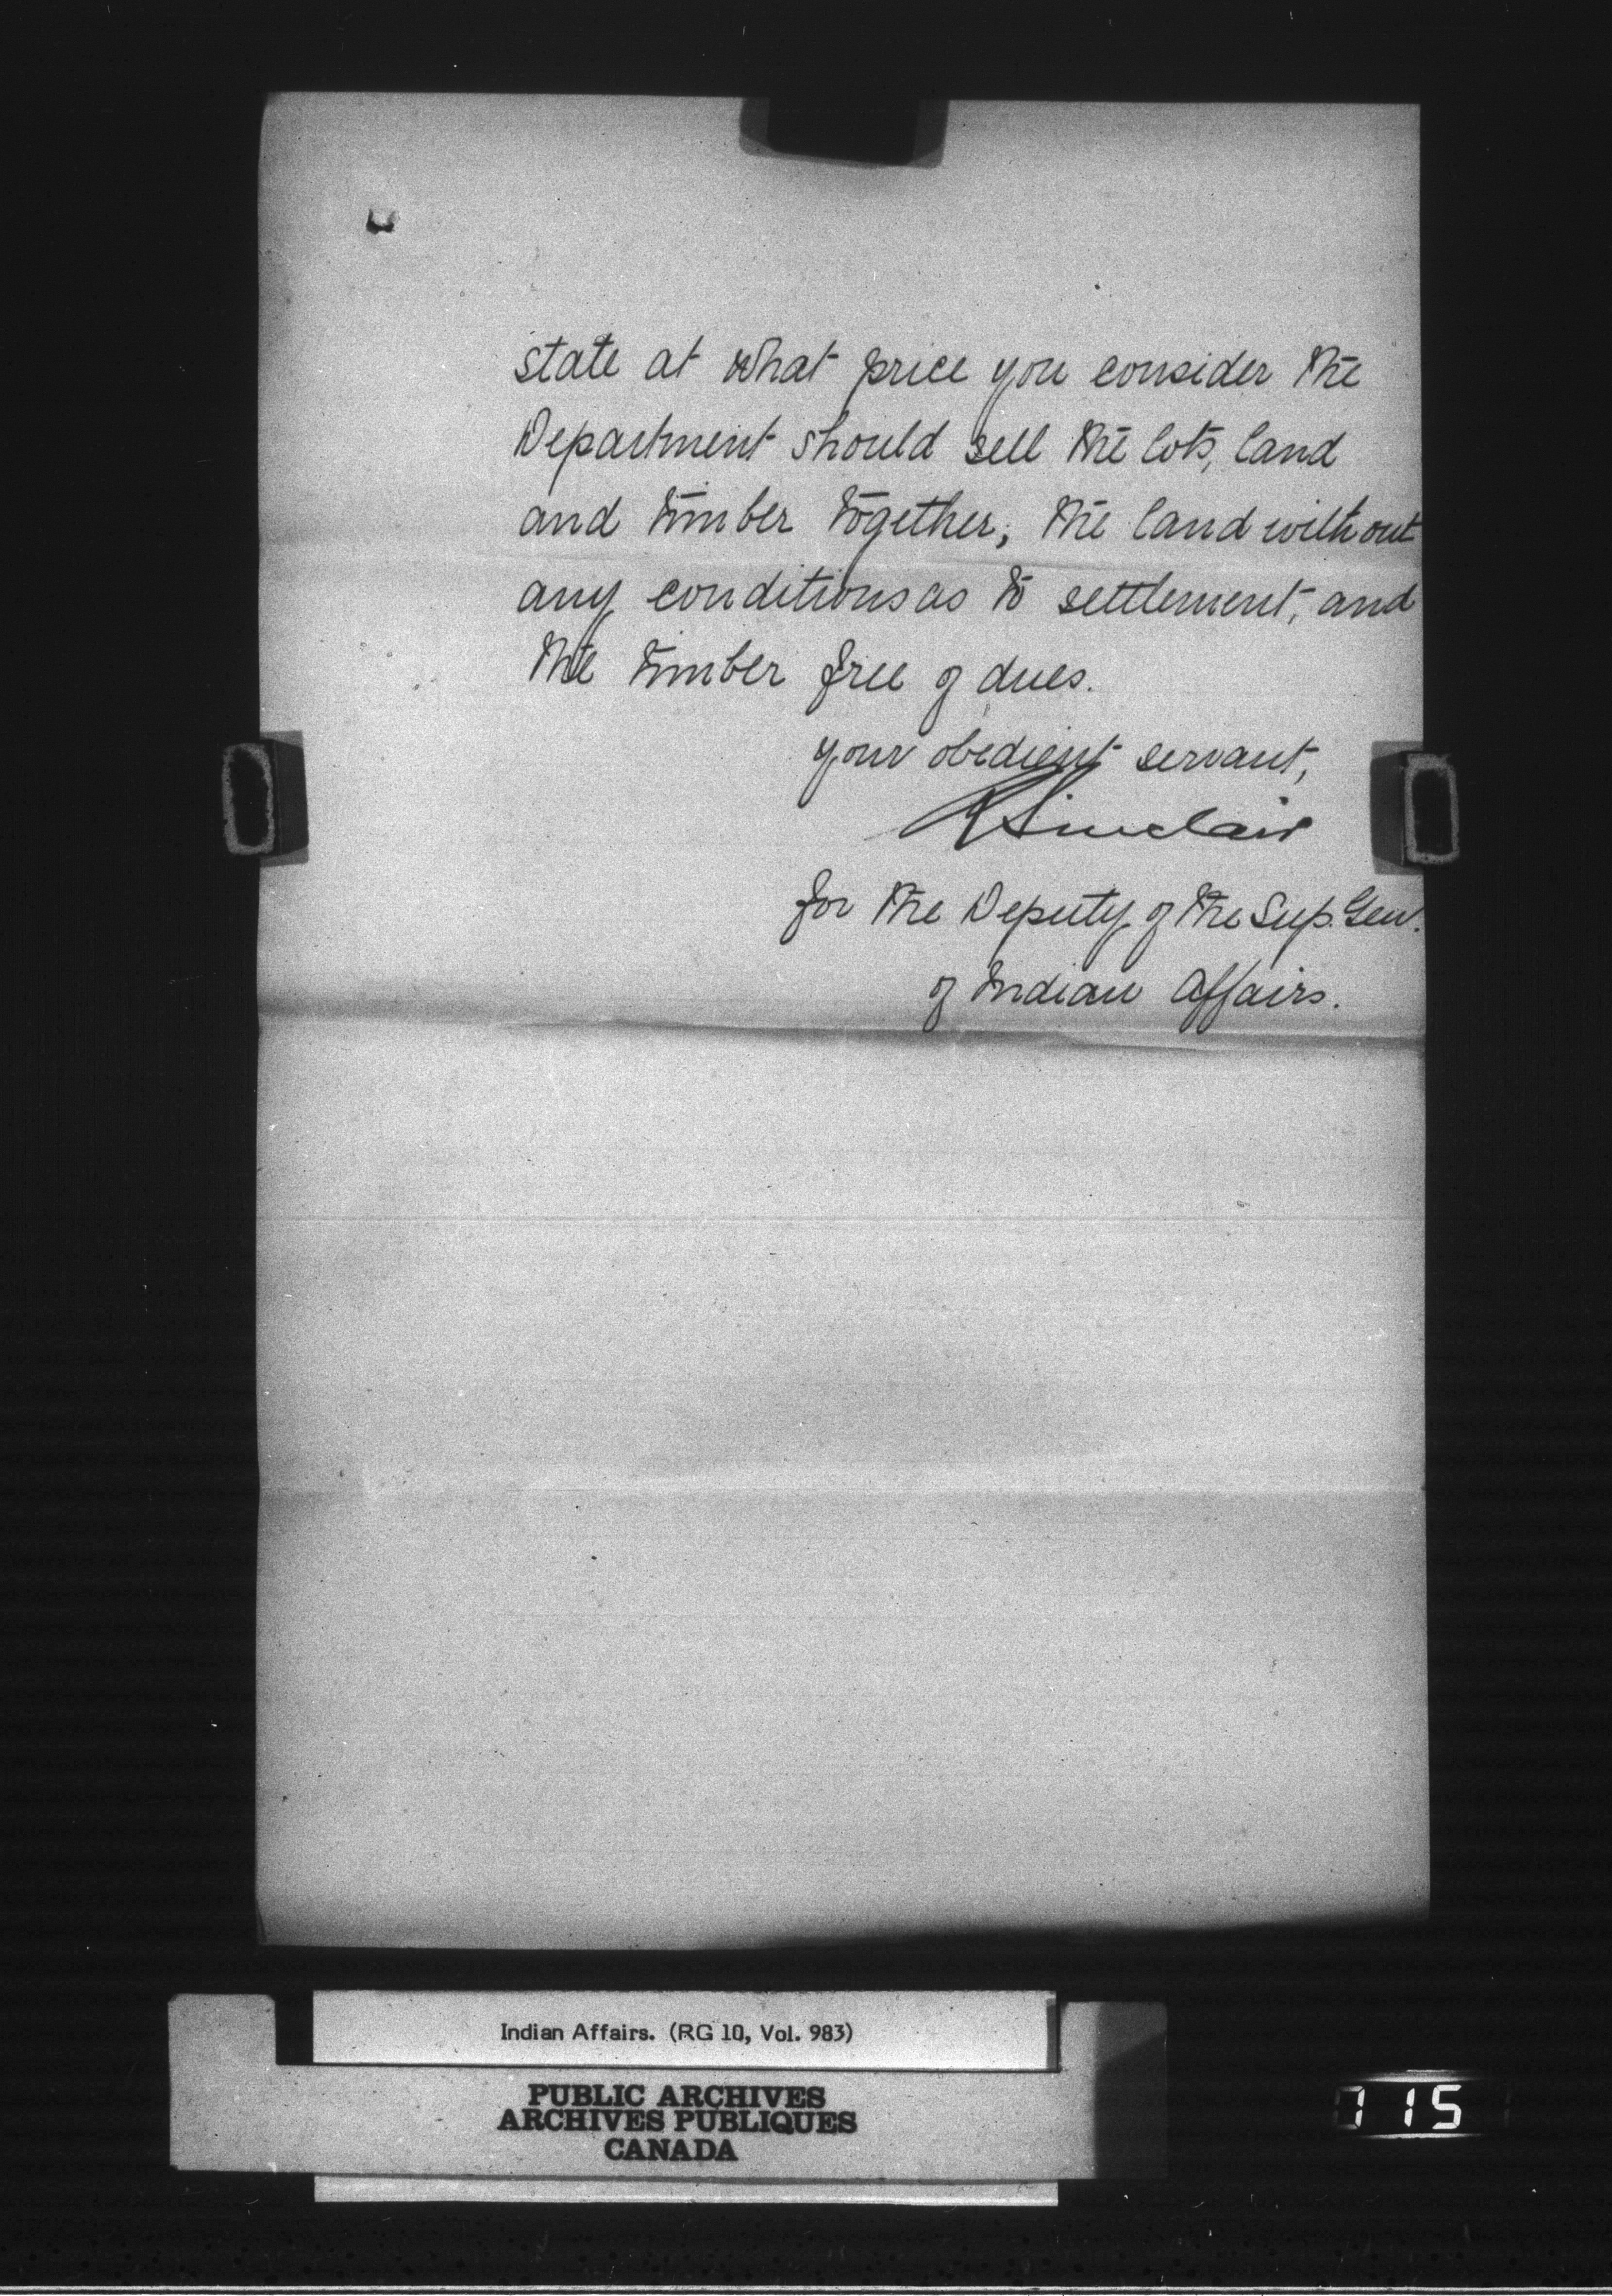 state at what price you consider the
Department should sell the lots, land
and timber together; the land without
any conditions as to settlement, and
the timber free of dues.
your obedient servant,
R Sinclair
for the Deputy of the Sup. Gen.
of Indian Affairs.
Indian Affairs. (RG 10, Vol. 983)
PUBLIC ARCHIVES
ARCHIVES PUBLIQUES
CANADA
115